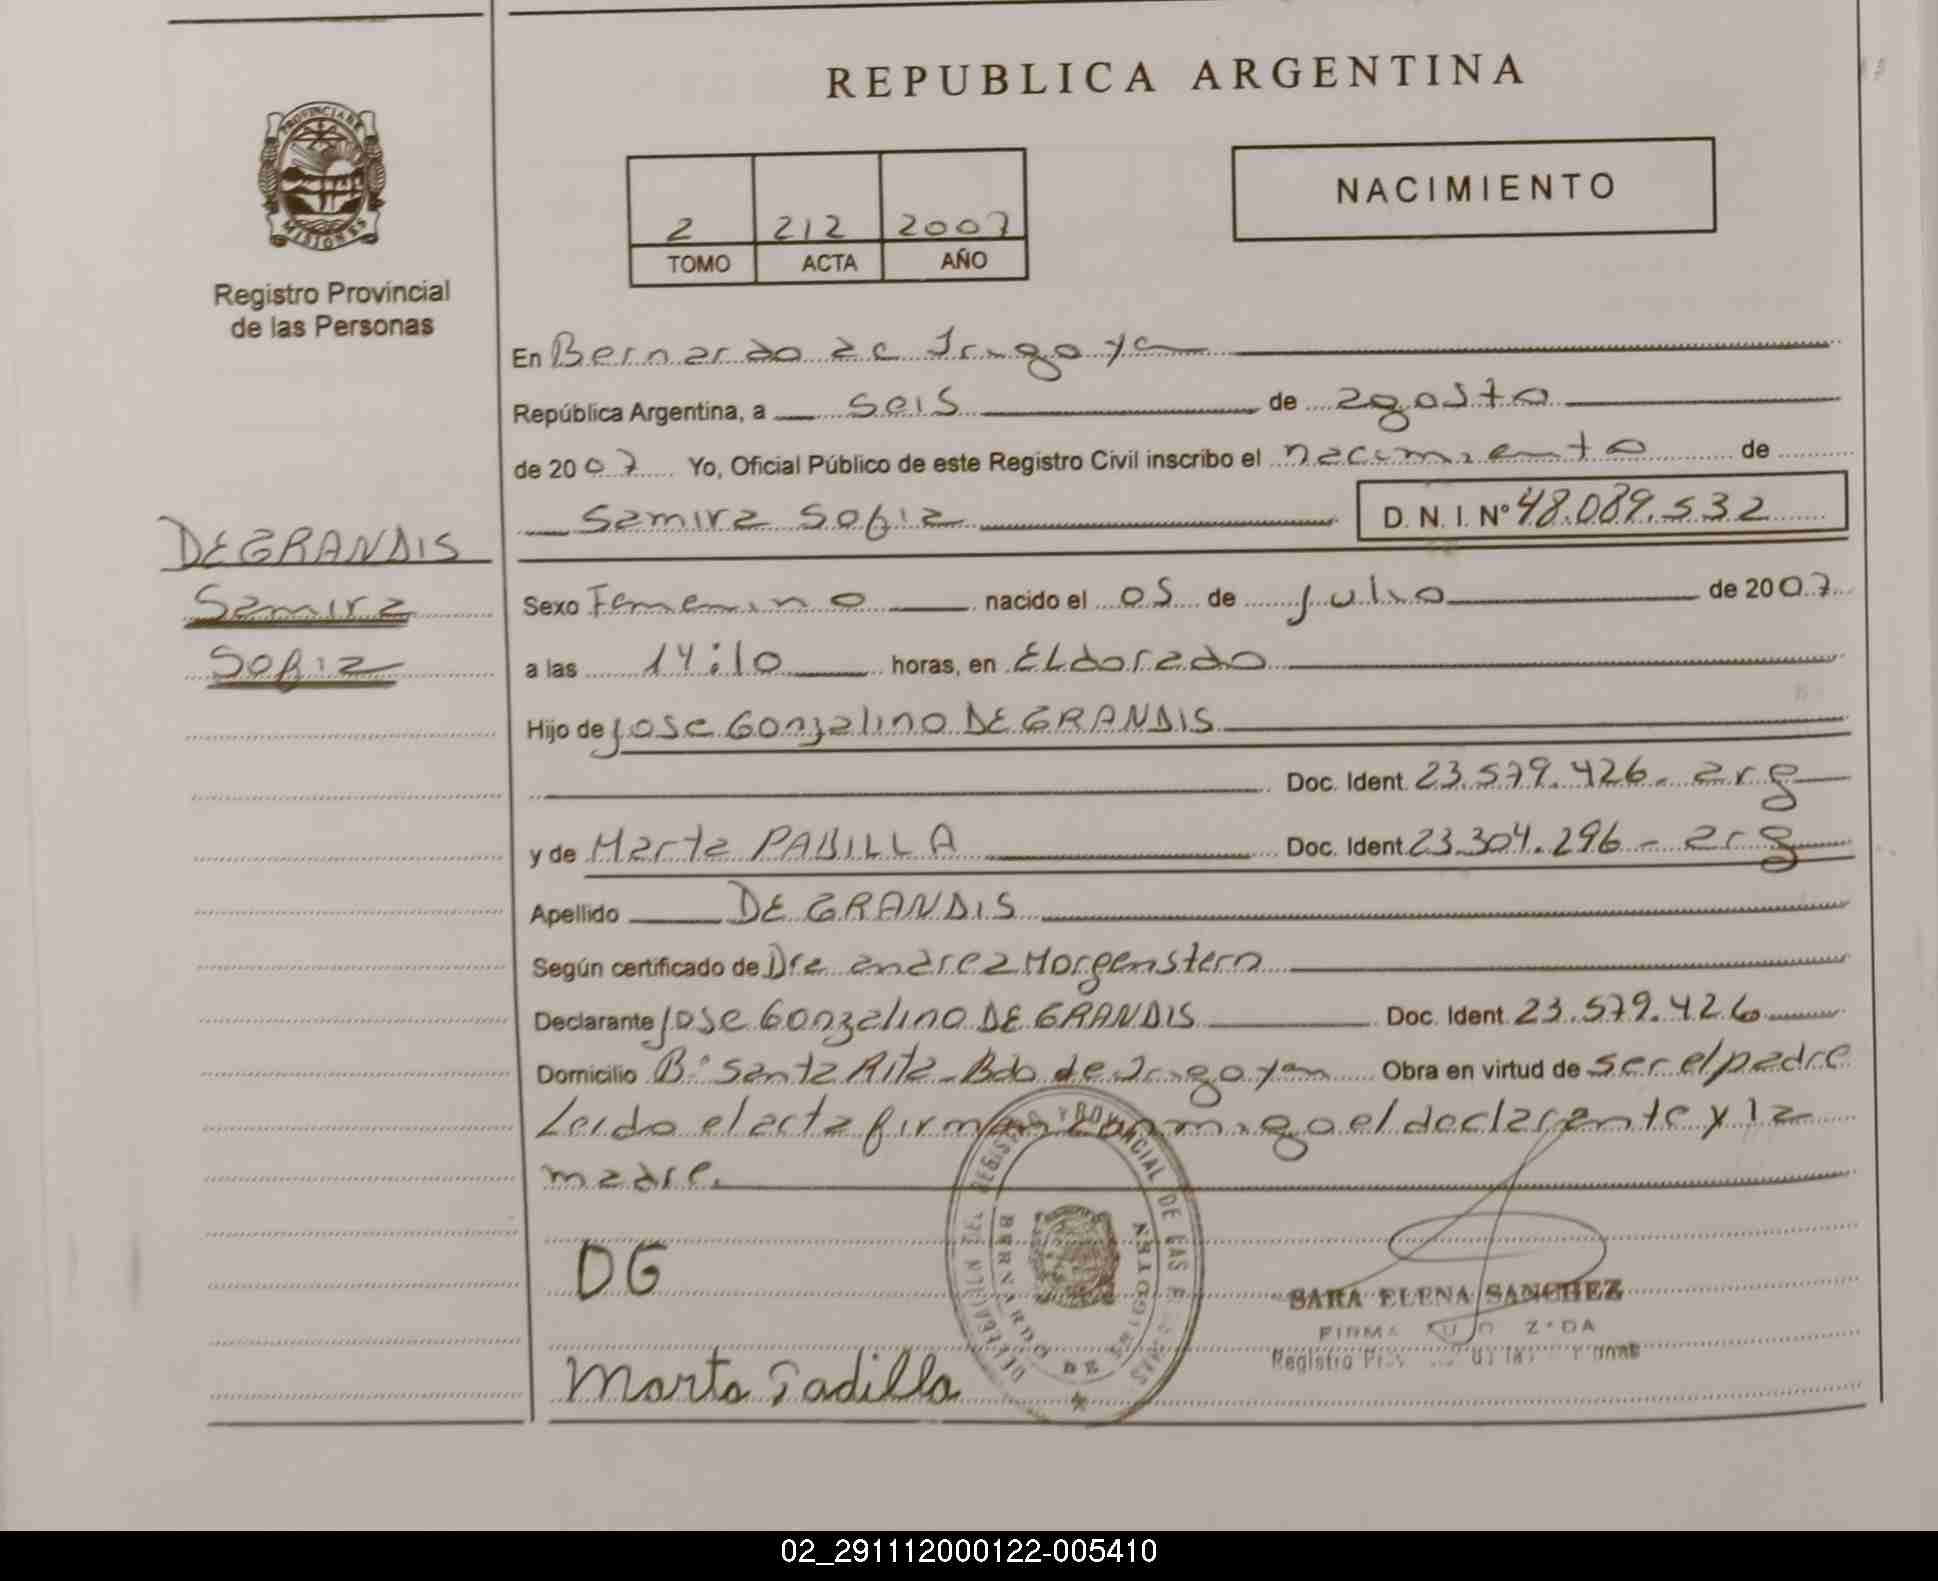 REPUBLICA ARGENTINA
PROVINCIA DE MISIONES
Registro Provincial
de las Personas
2 212 2007
TOMO ACTA AÑO
NACIMIENTO
En Bernardo de Irigoyen
República Argentina, a seis de agosto
de 2007 Yo, Oficial Público de este Registro Civil inscribo el nacimiento de
Samira Sofia D. N. I. N° 48.089.532
DE GRANDIS
Samira
Sofia
Sexo Femenino nacido el 05 de julio de 2007
a las 14:10 horas, en ELdorado
Hijo de jose Gonzalino DE GRANDIS
Doc. Ident. 23.579.426. arg
y de Marta PADILLA Doc. Ident. 23.304.296 - arg
Apellido DE GRANDIS
Según certificado de Dra andrea Morgenstern
Declarante jose Gonzalino DE GRANDIS Doc. Ident. 23.579.426
Domicilio B° Santa Rita - Bdo de Irigoyen Obra en virtud de ser el padre
Leido el acta firman conmigo el declarante y la
madre.
DG
Marta Padilla
DELEGACION DEL REGISTRO PROVINCIAL DE LAS
BERNARDO DE IRIGOYEN
SARA ELENA SANCHEZ
FIRMA
Registro
02_291112000122-005410